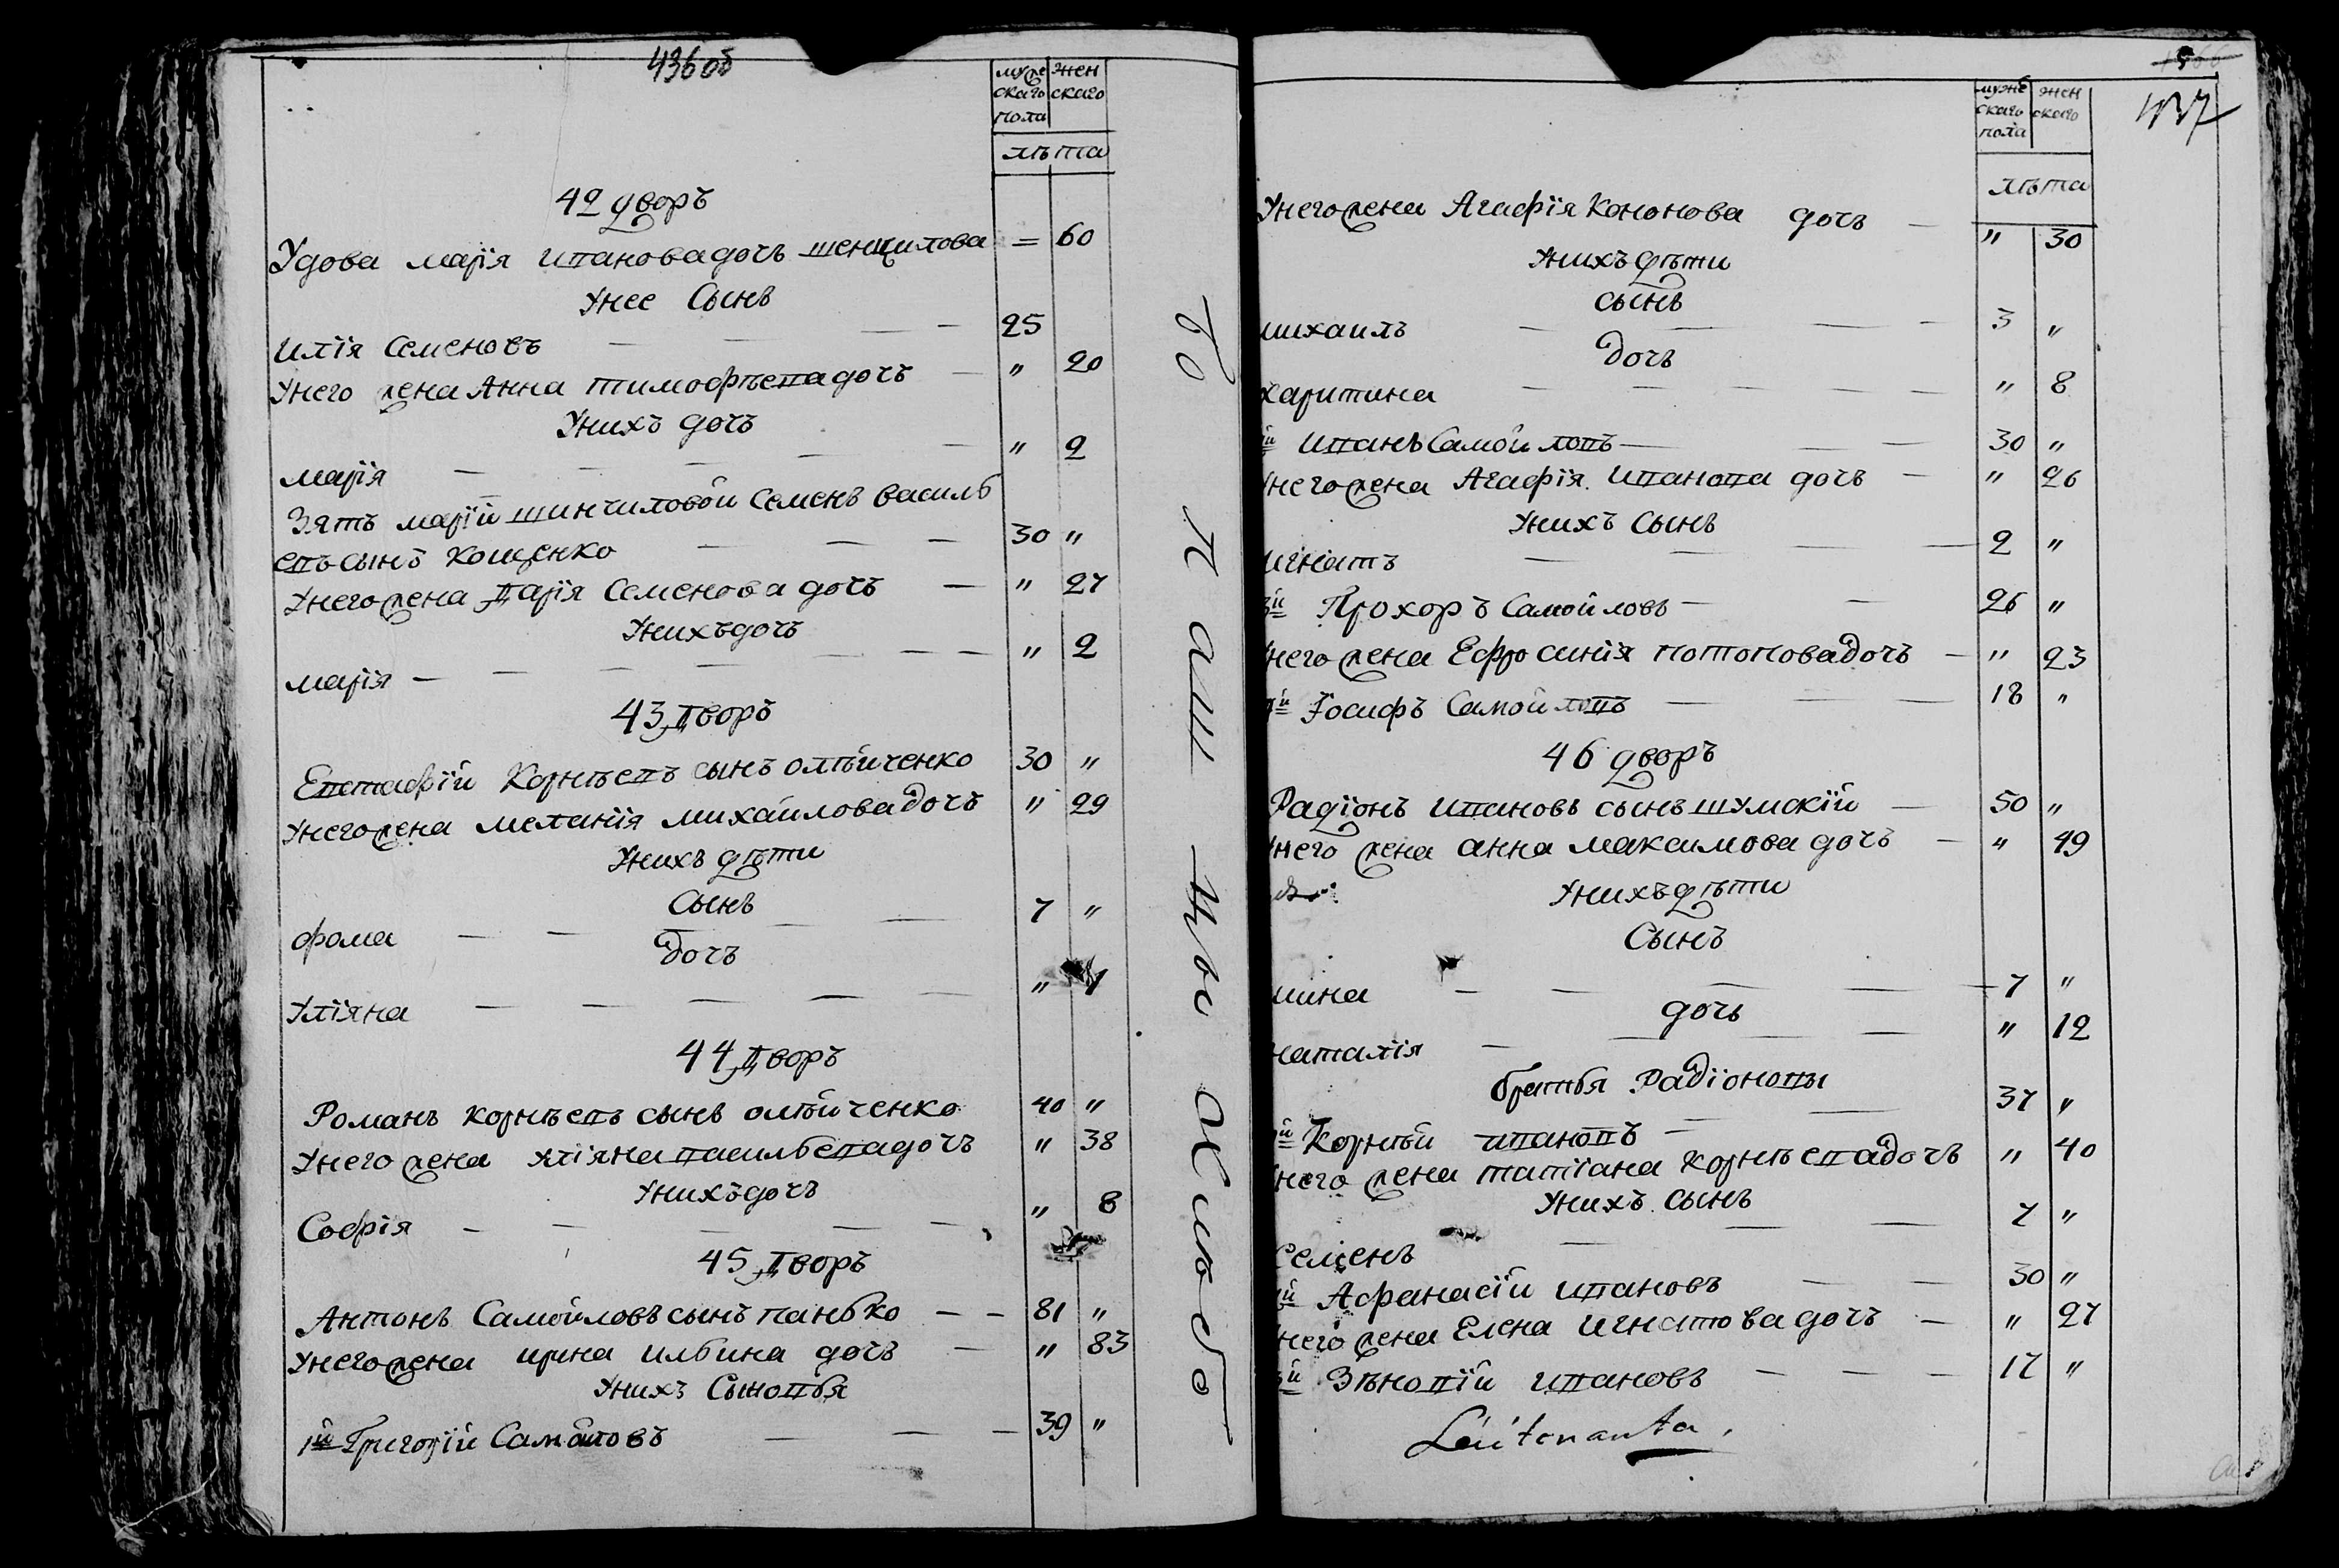 436 об
муже ской пола
жен ского
лѣта
42 дворъ
Удова марїя ивановадочъ шенцилова = 60
Унее Сынъ
илїя Семеновъ 25
Унего жена Анна тимофѣевадочъ " 20
Унихъ дочъ
марїя " 2
Зять марїй шинчиловой Семенъ василь
евъ сынъ кощенко 30 "
Унего жена Дарїя Семенова дочъ " 27
Унихъ дочъ
марїя " 2
43 дворъ
Евстафїй Корнѣевъ сынъ олѣйченко 30 "
Унего жена меланїя михайлова дочъ " 29
Унихъ дѣти
Сынъ
фома 7 "
дочъ
Улїяна "
44 дворъ
Романъ корнѣевъ сынъ олѣйченко 40 "
Унего жена улїяна васильевадочъ " 38
Унихъ дочъ
Софїя " 8
45 дворъ
Антонъ Самойловъ сынъ панько 81 "
Унего жена ирина ильина дочъ " 83
Унихъ Сыновья
1й Григорїй Самойловъ 39 "
437
муже скаго пола
жен скаго
лѣта
Унего жена Агафїя Кононова дочъ " 30
Унихъ дѣти
сынъ
михаилъ 3 "
дочъ
харитина " 8
й иванъ Самойловъ 30 "
Унего жена Агафїя ивановва дочъ " 26
Унихъ Сынъ
игнатъ 2 "
3й Прохоръ Самойловъ 26 "
Унего жена Ефросинїя потоповадочъ " 23
й Їосифъ Самойловъ 18 "
46 дворъ
Радїонъ ивановъ сынъ шумскїй 50 "
Унего жена анна максимова дочъ " 49
Унихъ дѣти
Сынъ
мина 7 "
дочъ
наталїя " 12
братья Радїоновы
й Корнѣй ивановъ 37 "
Унего жена татїана корнѣевадочъ " 40
Унихъ Сынъ
Семенъ 7 "
й Афанасїй ивановъ 30 "
Унего жена Елена игнатова дочъ " 27
й Зѣновїй ивановъ 17 "
Leitenanta.